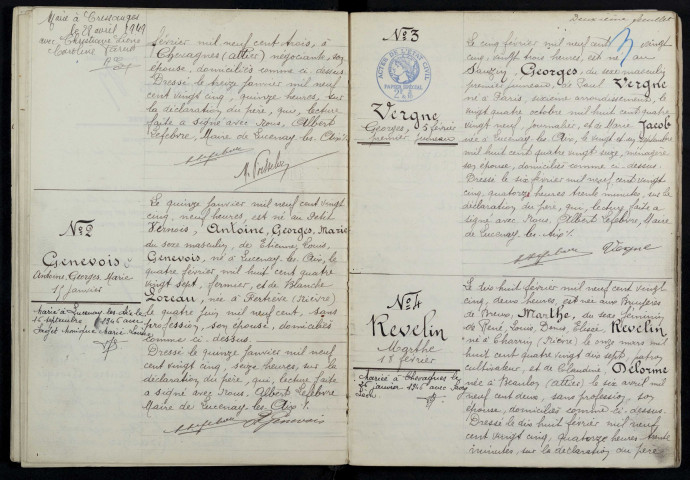 Marié à Cressanges
le 28 avril 1949
avec Christiane
Caroline
février mil neuf cent trois, à
Chevagnes (Allier) négociante, son
épouse, domiciliés comme ci-dessus.
Dressé le treize janvier mil neuf
cent vingt cinq, quinze heures, sur
la déclaration du père, qui, lecture
faite a signé avec Nous, Albert
Lefebvre, Maire de Lucenay-les-Aix ./.
N°2
Genevois
Antoine, Georges, Marie
15 janvier
Marié à Lucenay les Aix le
15 septembre 1946 avec
Monique Marie Louise
Le quinze janvier mil neuf cent vingt
cinq, neuf heures, est né au
Vernois, Antoine, Georges, Marie
du sexe masculin, de Etienne, Louis,
Genevois, né à Lucenay-les-Aix, le
quatre février mil huit cent quatre
vingt sept, fermier, et de Blanche
Loreau, née à (Nièvre)
le quatre juin mil neuf cent, sans
profession, son épouse, domiciliés
comme ci-dessus.
Dressé le quinze janvier mil neuf
cent vingt cinq, seize heures, sur la
déclaration du père, qui, lecture faite
a signé avec Nous, Albert Lefebvre
Maire de Lucenay-les-Aix ./.
Genevois
Deuxième feuillet
3
N°3
ACTES DE L'ETAT CIVIL
PAPIER SPECIAL
Vergne
Georges, 5 février
premier jumeau
Le cinq février mil neuf cent vingt
cinq, vingt trois heures, est né au
Georges, du sexe masculin,
premier jumeau, de Paul Vergne
né à Paris, sixième arrondissement, le
vingt quatre octobre mil huit cent quatre
vingt neuf, journalier, et de Marie Jacob
née à Lucenay-les-Aix, le vingt septembre
mil huit cent quatre vingt onze, ménagère
son épouse, domiciliés comme ci-dessus.
Dressé le six février mil neuf cent vingt
cinq, quatorze heures trente minutes, sur la
déclaration du père, qui, lecture faite a
signé avec Nous, Albert Lefebvre, Maire
de Lucenay-les-Aix ./.
Vergne
N°4
Revelin
Marthe
18 février
Mariée à Chevagnes le
janvier 1946 avec
Le dix huit février mil neuf cent vingt
cinq, deux heures, est née aux Bruyères
de Marthe, du sexe féminin,
de René, Louis, Denis, Elisée Revelin
né à Charrin (Nièvre) le onze mars mil
huit cent quatre vingt dix sept,
cultivateur, et de Claudine, Delorme
née à Beaulon (Allier) le six avril mil
neuf cent deux, sans profession, son
épouse, domiciliés comme ci-dessus.
Dressé le dix huit février mil neuf
cent vingt cinq, quatorze heures trente
minutes, sur la déclaration du père